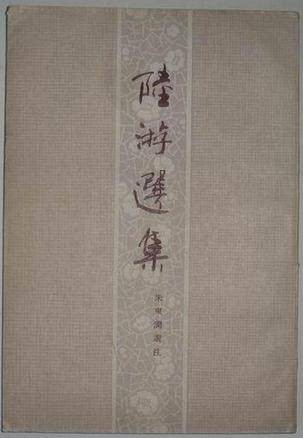 陸游選集
朱東潤選注